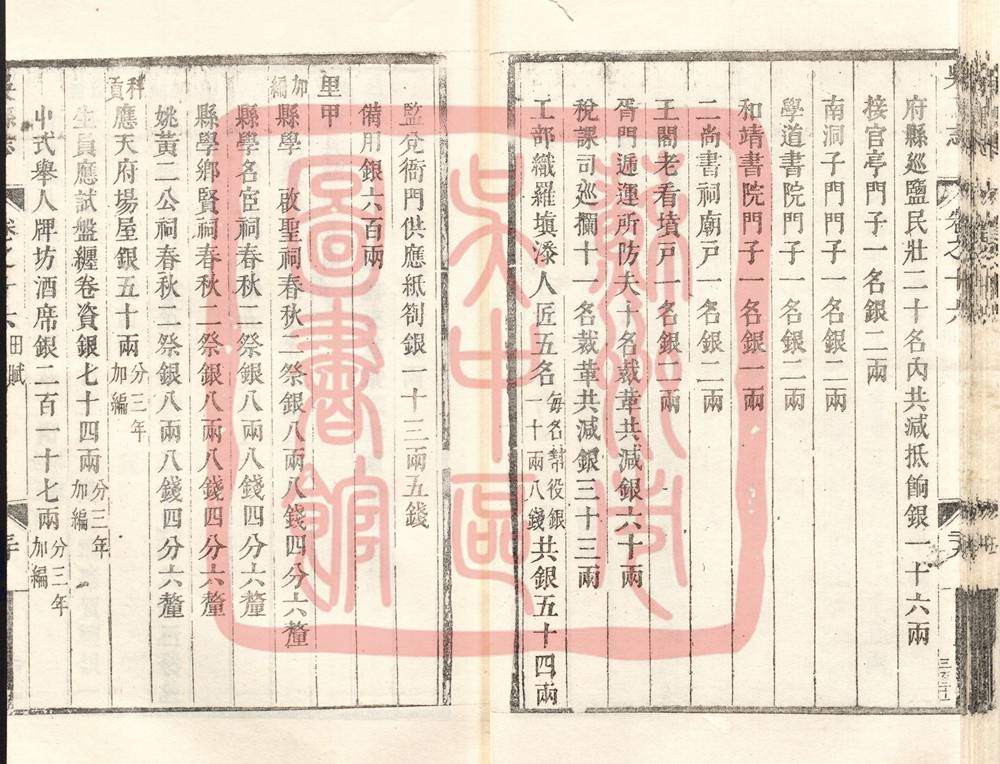 吳 志 卷之十六
府縣廵鹽民壯二十名內共減抵餉銀一十六兩
接官亭門子一名銀二兩
南洞子門門子一名銀二兩
學道書院門子一名銀二兩
和靖書院門子一名銀一兩
二尚書祠廟戶一名銀二兩
王閣老看墳戶一名銀二兩
胥門遞運所防夫十名裁革共減銀六十兩
稅課司廵攔十一名裁革共減銀三十三兩
工部織羅塡漆人匠五名每名幫役銀一十兩八錢共銀五十四兩
監兌衙門供應紙劄銀一十三兩五錢
備用銀六百兩
里甲
加編縣學 啟聖祠春秋二祭銀八兩八錢四分六釐
縣學名宦祠春秋二祭銀八兩八錢四分六釐
縣學鄉賢祠春秋二祭銀八兩八錢四分六釐
姚黃二公祠春秋二祭銀八兩八錢四分六釐
科貢應天府場屋銀五十兩分三年加編
生員應試盤纏卷資銀七十四兩分三年加編
中式舉人牌坊酒席銀二百一十七兩分三年加編
吳縣志 卷之十六 田賦
蘇州市吳中區圖書館